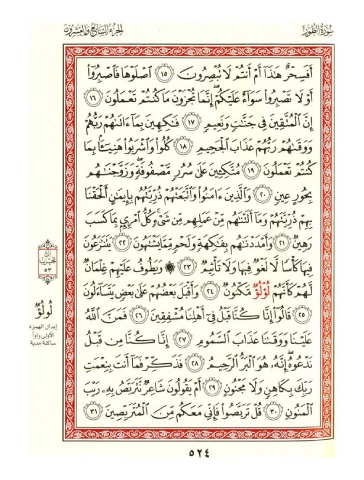 سُورَةُ الطُّورِ
الجُزْءُ السَّابِعُ وَالعِشْرُونَ
أَفَسِحْرٌ هَٰذَا أَمْ أَنتُمْ لَا تُبْصِرُونَ ١٥ اصْلَوْهَا فَاصْبِرُوا
أَوْ لَا تَصْبِرُوا سَوَاءٌ عَلَيْكُمْ إِنَّمَا تُجْزَوْنَ مَا كُنتُمْ تَعْمَلُونَ ١٦
إِنَّ الْمُتَّقِينَ فِي جَنَّٰتٍ وَنَعِيمٍ ١٧ فَٰكِهِينَ بِمَا ءَاتَىٰهُمْ رَبُّهُمْ
وَوَقَىٰهُمْ رَبُّهُمْ عَذَابَ الْجَحِيمِ ١٨ كُلُوا وَاشْرَبُوا هَنِيئًا بِمَا
كُنتُمْ تَعْمَلُونَ ١٩ مُتَّكِئِينَ عَلَىٰ سُرُرٍ مَّصْفُوفَةٍ وَزَوَّجْنَٰهُم
بِحُورٍ عِينٍ ٢٠ وَالَّذِينَ ءَامَنُوا وَاتَّبَعَتْهُمْ ذُرِّيَّتُهُم بِإِيمَٰنٍ أَلْحَقْنَا
بِهِمْ ذُرِّيَّتَهُمْ وَمَا أَلَتْنَٰهُم مِّنْ عَمَلِهِم مِّن شَيْءٍ كُلُّ امْرِئٍ بِمَا كَسَبَ
رَهِينٌ ٢١ وَأَمْدَدْنَٰهُم بِفَٰكِهَةٍ وَلَحْمٍ مِّمَّا يَشْتَهُونَ ٢٢ يَتَنَٰزَعُونَ
فِيهَا كَأْسًا لَّا لَغْوٌ فِيهَا وَلَا تَأْثِيمٌ ٢٣ وَيَطُوفُ عَلَيْهِمْ غِلْمَانٌ
لَّهُمْ كَأَنَّهُمْ لُؤْلُؤٌ مَّكْنُونٌ ٢٤ وَأَقْبَلَ بَعْضُهُمْ عَلَىٰ بَعْضٍ يَتَسَاءَلُونَ
٢٥ قَالُوا إِنَّا كُنَّا قَبْلُ فِي أَهْلِنَا مُشْفِقِينَ ٢٦ فَمَنَّ اللَّهُ
عَلَيْنَا وَوَقَىٰنَا عَذَابَ السَّمُومِ ٢٧ إِنَّا كُنَّا مِن قَبْلُ
نَدْعُوهُ إِنَّهُ هُوَ الْبَرُّ الرَّحِيمُ ٢٨ فَذَكِّرْ فَمَا أَنتَ بِنِعْمَتِ
رَبِّكَ بِكَاهِنٍ وَلَا مَجْنُونٍ ٢٩ أَمْ يَقُولُونَ شَاعِرٌ نَّتَرَبَّصُ بِهِ رَيْبَ
الْمَنُونِ ٣٠ قُلْ تَرَبَّصُوا فَإِنِّي مَعَكُم مِّنَ الْمُتَرَبِّصِينَ ٣١
٥٣
لُولُؤٌ
إبدال الهمزة
الأولى واواً
ساكنة مدية
٥٢٤